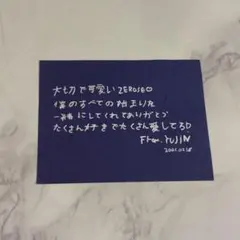 大切で可愛いZEROSE♡
僕のすべての始まりを
一緒にしてくれてありがとう
たくさんメチャまでたくさん愛してる♡
From. YUJIN